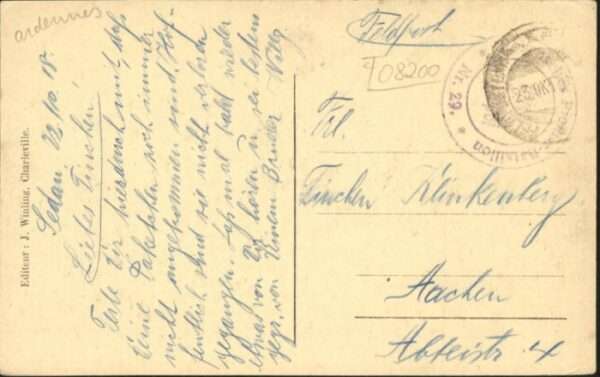 ardennes
Feldpost
08200
Nr. 29.
Bataillon
Sedan. 22.10.15.
Liebes Finchen!
Teile Dir hierdurch mit, daß
Deine Paketchen noch immer
nicht angekommen sind. Hof-
fentlich sind sie nicht verloren
gegangen. Laß mal bald wieder
etwas von Dir hören u. sei bestens
gegr. von Deinem Bruder Willy
Frl.
Finchen Klinkenberg
Aachen
Abteistr. 4
Editeur : J. Winling, Charleville.